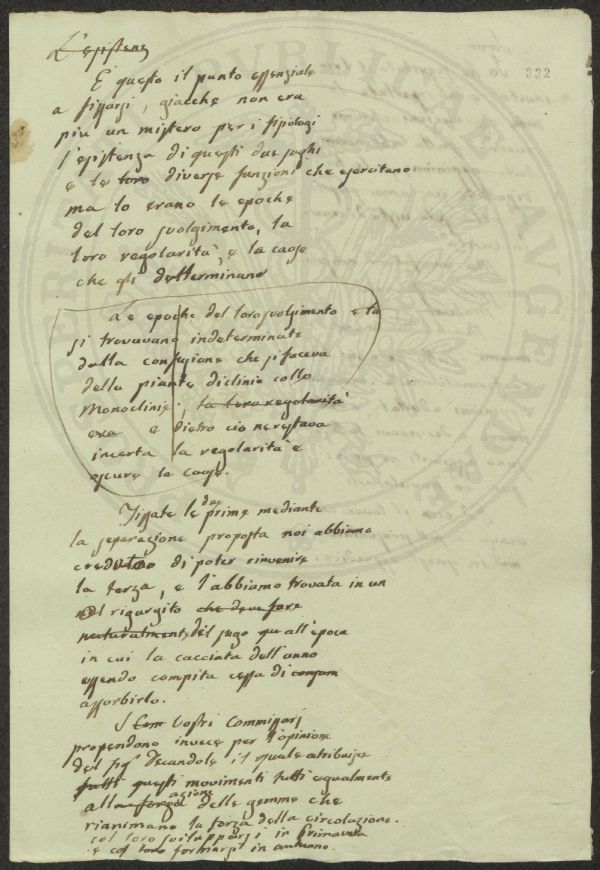 L'esistenz
332
E questo il punto essenziale
a fissarsi, giacchè non era
piu un mistero per i fisiologi
l'esistenza di questi due sughi
e le loro diverse funzioni che esercitano
ma lo erano le epoche
del loro svolgimento, la
loro regolarità, e la caose
che gli determinano
Le epoche del loro svolgimento e la
si trovavano indeterminate
dalla confusione che si faceva
della piante diclinie colle
Monoclinie, la loro regolarità
era e dietro cio ne restava
incerta la regolarità e
oscure le caose.
Fissate le due prime mediante
la separazione proposta noi abbiamo
creduto di poter rinvenire
la terza, e l'abbiamo trovata in un
rigurgito che deve fare
naturalmente del sugo quall'epoca
in cui la cacciata dell'anno
essendo compita cessa di
assorbirlo.
I Vostri Commissarj
propendono invece per l'opinione
del Decandole il quale atribuisce
tutti questi movimenti tutti egualmente
alla forza azione delle gemme che
rianimano la forza della circolazione.
col loro svilupparsi in Primavera
e col loro formarsi in autunno.